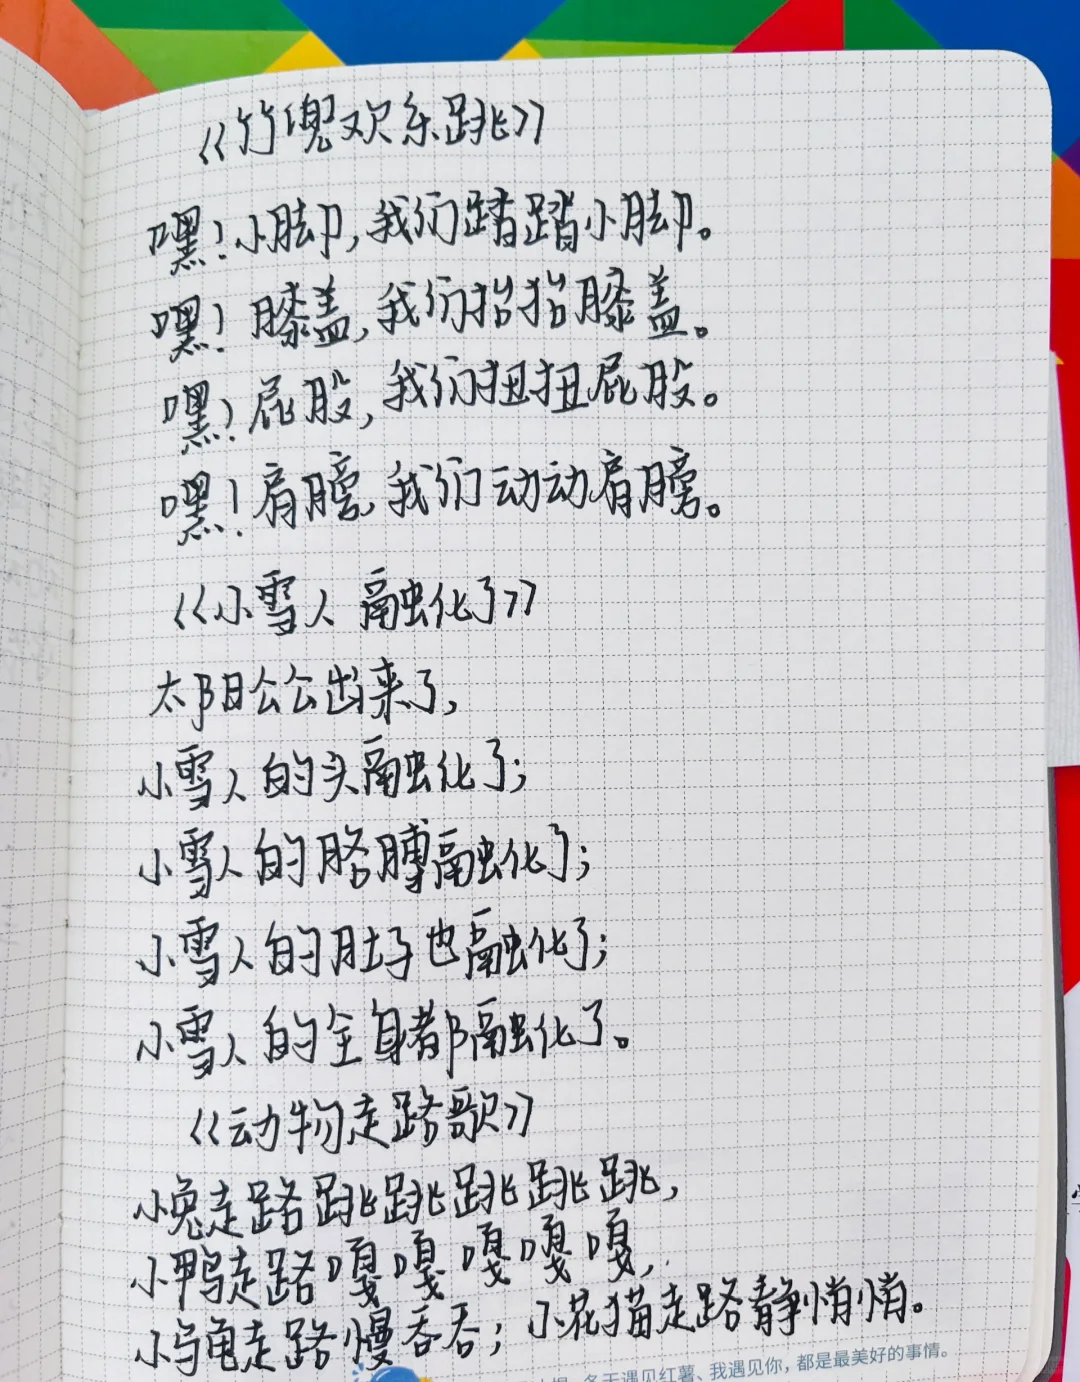 《竹兜欢乐跳》
嘿！小脚，我们踏踏小脚。
嘿！膝盖，我们抬抬膝盖。
嘿！屁股，我们扭扭屁股。
嘿！肩膀，我们动动肩膀。
《小雪人融化了》
太阳公公出来了，
小雪人的头融化了；
小雪人的胳膊融化了；
小雪人的肚子也融化了；
小雪人的全身都融化了。
《动物走路歌》
小兔走路跳跳跳跳跳，
小鸭走路嘎嘎嘎嘎嘎，
小乌龟走路慢吞吞；小花猫走路静悄悄。
冬天遇见红薯、我遇见你，都是最美好的事情。